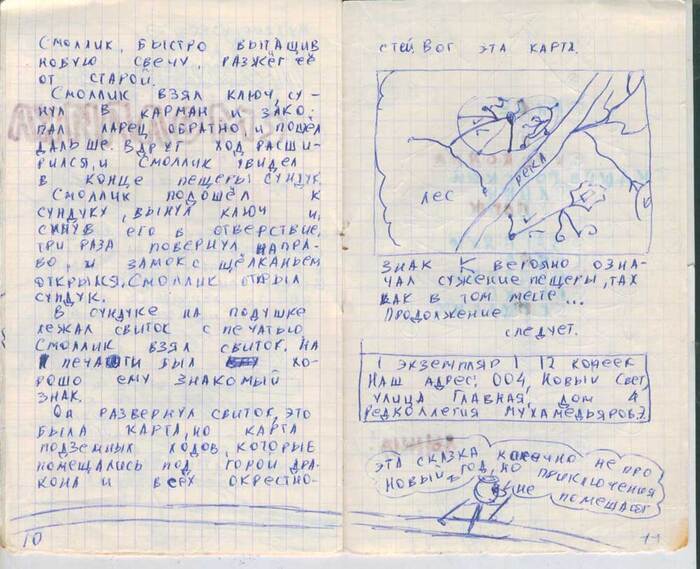 Смоллик, быстро вытащив
новую свечу, разжёг её
от старой.
Смоллик взял ключ, су-
нул в карман и зако-
пал ларец обратно и пошёл
дальше. Вдруг ход расши-
рился, и Смоллик увидел
в конце пещеры сундук.
Смоллик подошёл к
сундуку, вынул ключ и,
сунув его в отверстие,
три раза повернул напра-
во, и замок с щёлканьем
открылся. Смоллик открыл
сундук.
В сундуке на подушке
лежал свиток с печатью
Смоллик взял свиток. На
печати был хо-
рошо ему знакомый
знак.
Он развернул свиток, это
была карта, но карта
подземных ходов, которые
помещались под горой дра-
кона и всех окрестно-
10
стей. Вот эта карта.
река
лес
Знак К вероятно озна-
чал сужение пещеры, так
как в том месте...
Продолжение
следует.
1 экземпляр | 12 копеек
Наш адрес: 004, Новый Свет,
улица Главная, дом 4
редколлегия Мухамедьяров
Эта сказка конечно не про
Новый год, но приключения
не помешают
11